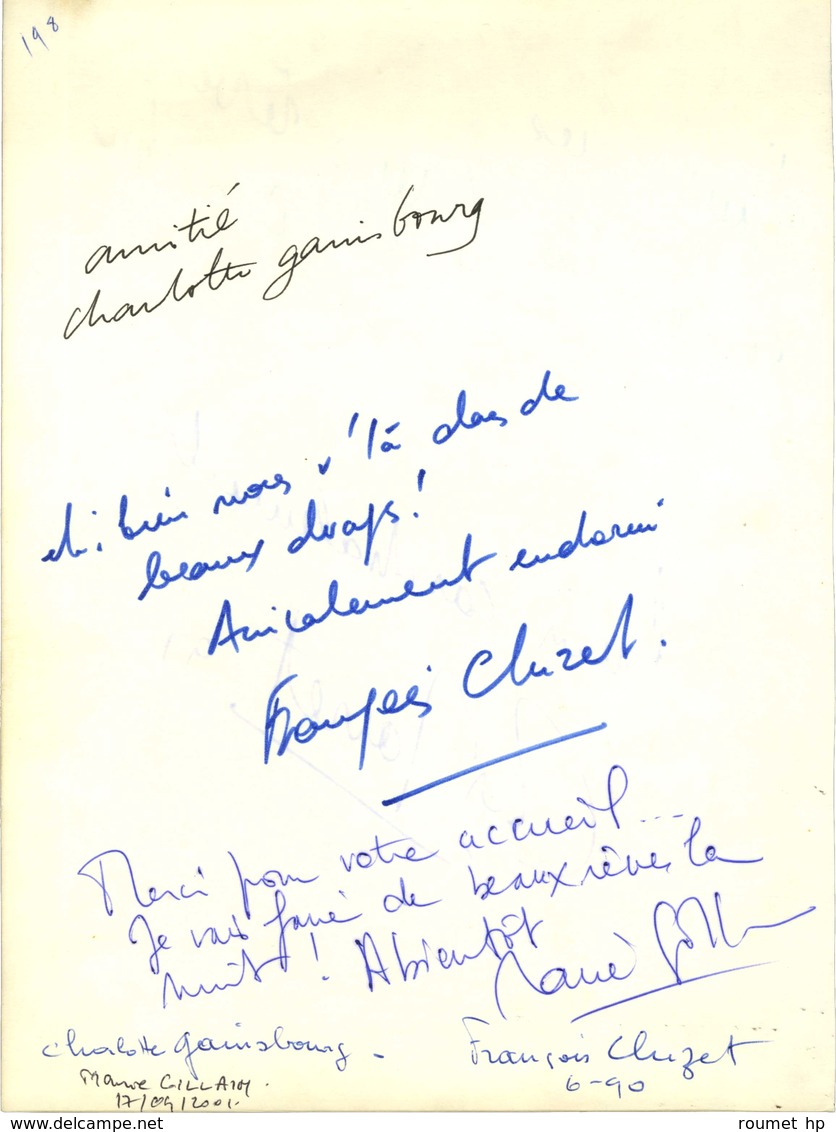 198
amitié
charlotte gainsbourg
eh ! bien nous v'là dans de
beaux draps !
Amicalement endormi
François Cluzet.
Merci pour votre accueil...
Je vais faire de beaux rêves la
nuit ! A bientôt
Charlotte Gainsbourg -
François Cluzet
6-90
GILLAIN.
17/09/2001.
roumet hp